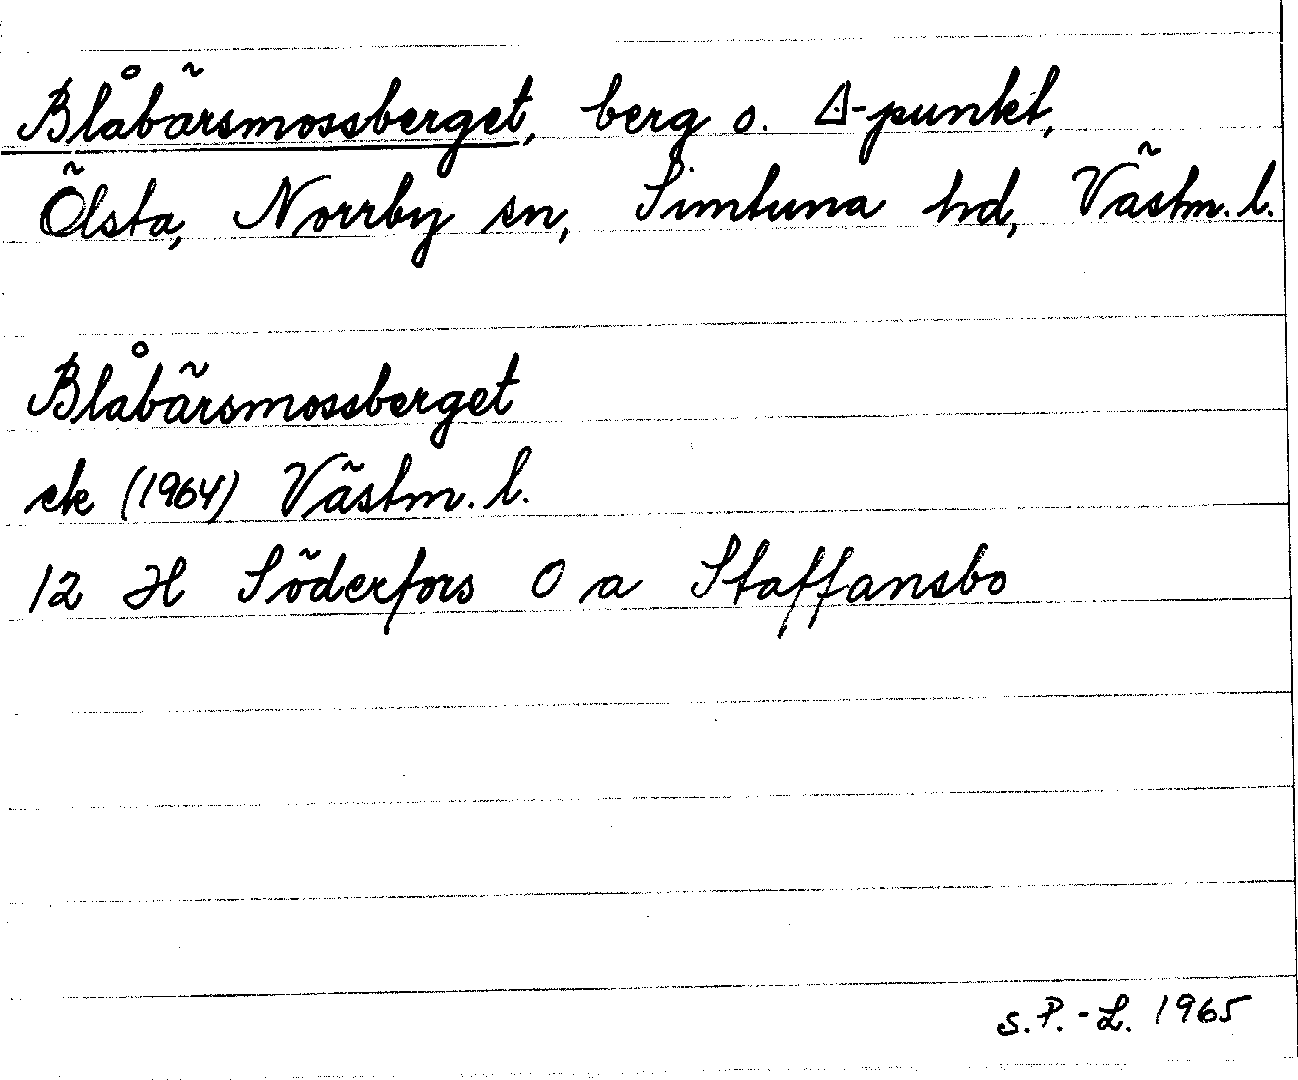 Blåbärsmossberget, berg o. Δ-punkt,
Ölsta, Norrby sn, Simtuna hd, Västm. l.
Blåbärsmossberget
ek (1964) Västm. l.
12 H Söderfors 0 a Staffansbo
S.P.-L. 1965